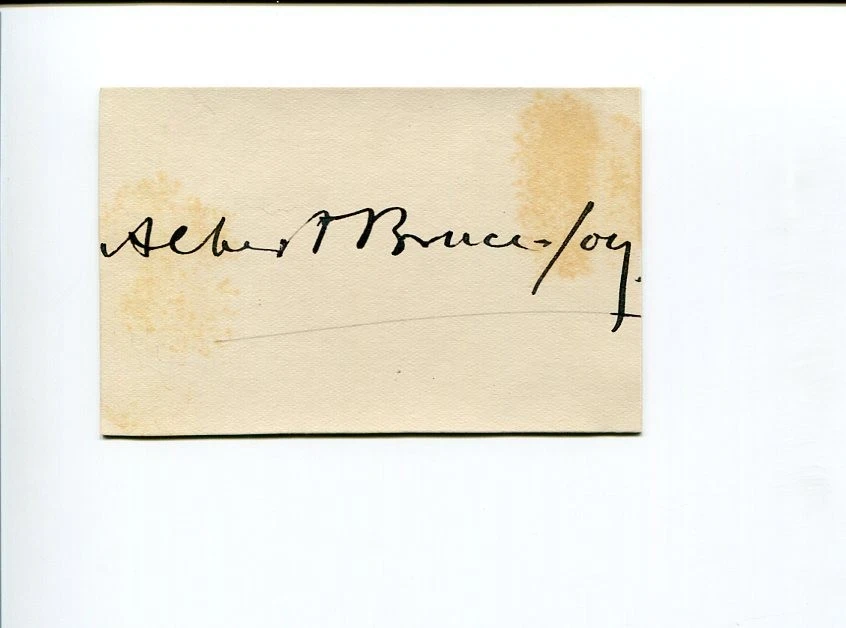 Albert Bruce-Joy.